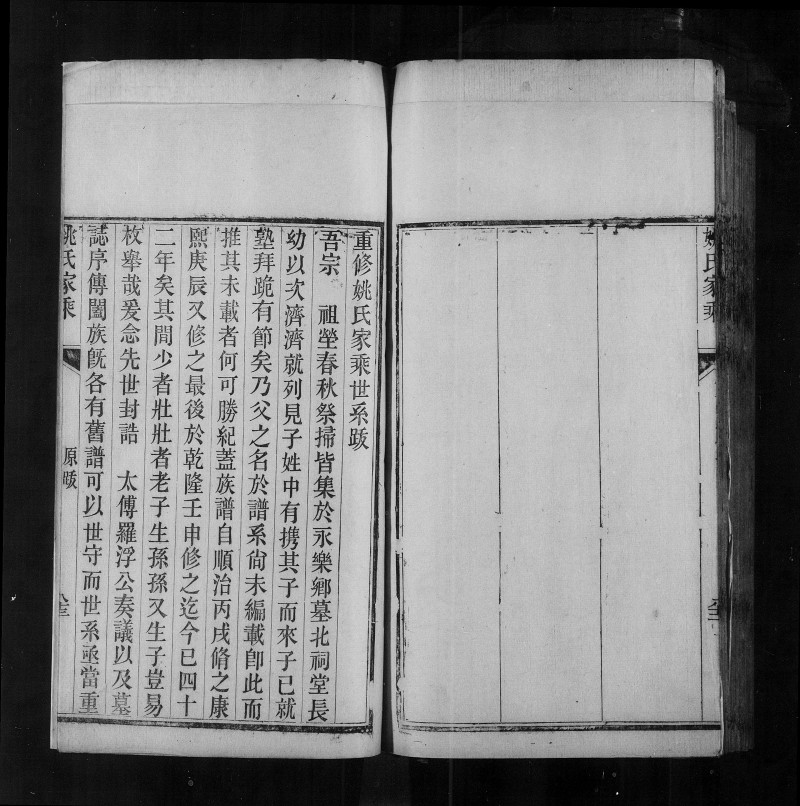 姚氏家乘
重修姚氏家乘世系跋
吾宗 祖塋春秋祭掃皆集於永樂鄉墓北祠堂長
幼以次濟濟就列見子姓中有携其子而來子已就
塾拜跪有節矣乃父之名於譜系尙未編載卽此而
推其未載者何可勝紀蓋族譜自順治丙戌脩之康
熙庚辰又修之最後於乾隆壬申修之迄今巳四十
二年矣其間少者壯壯者老子生孫孫又生子豈易
枚舉哉爰念先世封誥 太傅羅浮公奏議以及墓
誌序傳闔族旣各有舊譜可以世守而世系亟當重
姚氏家乘 原跋